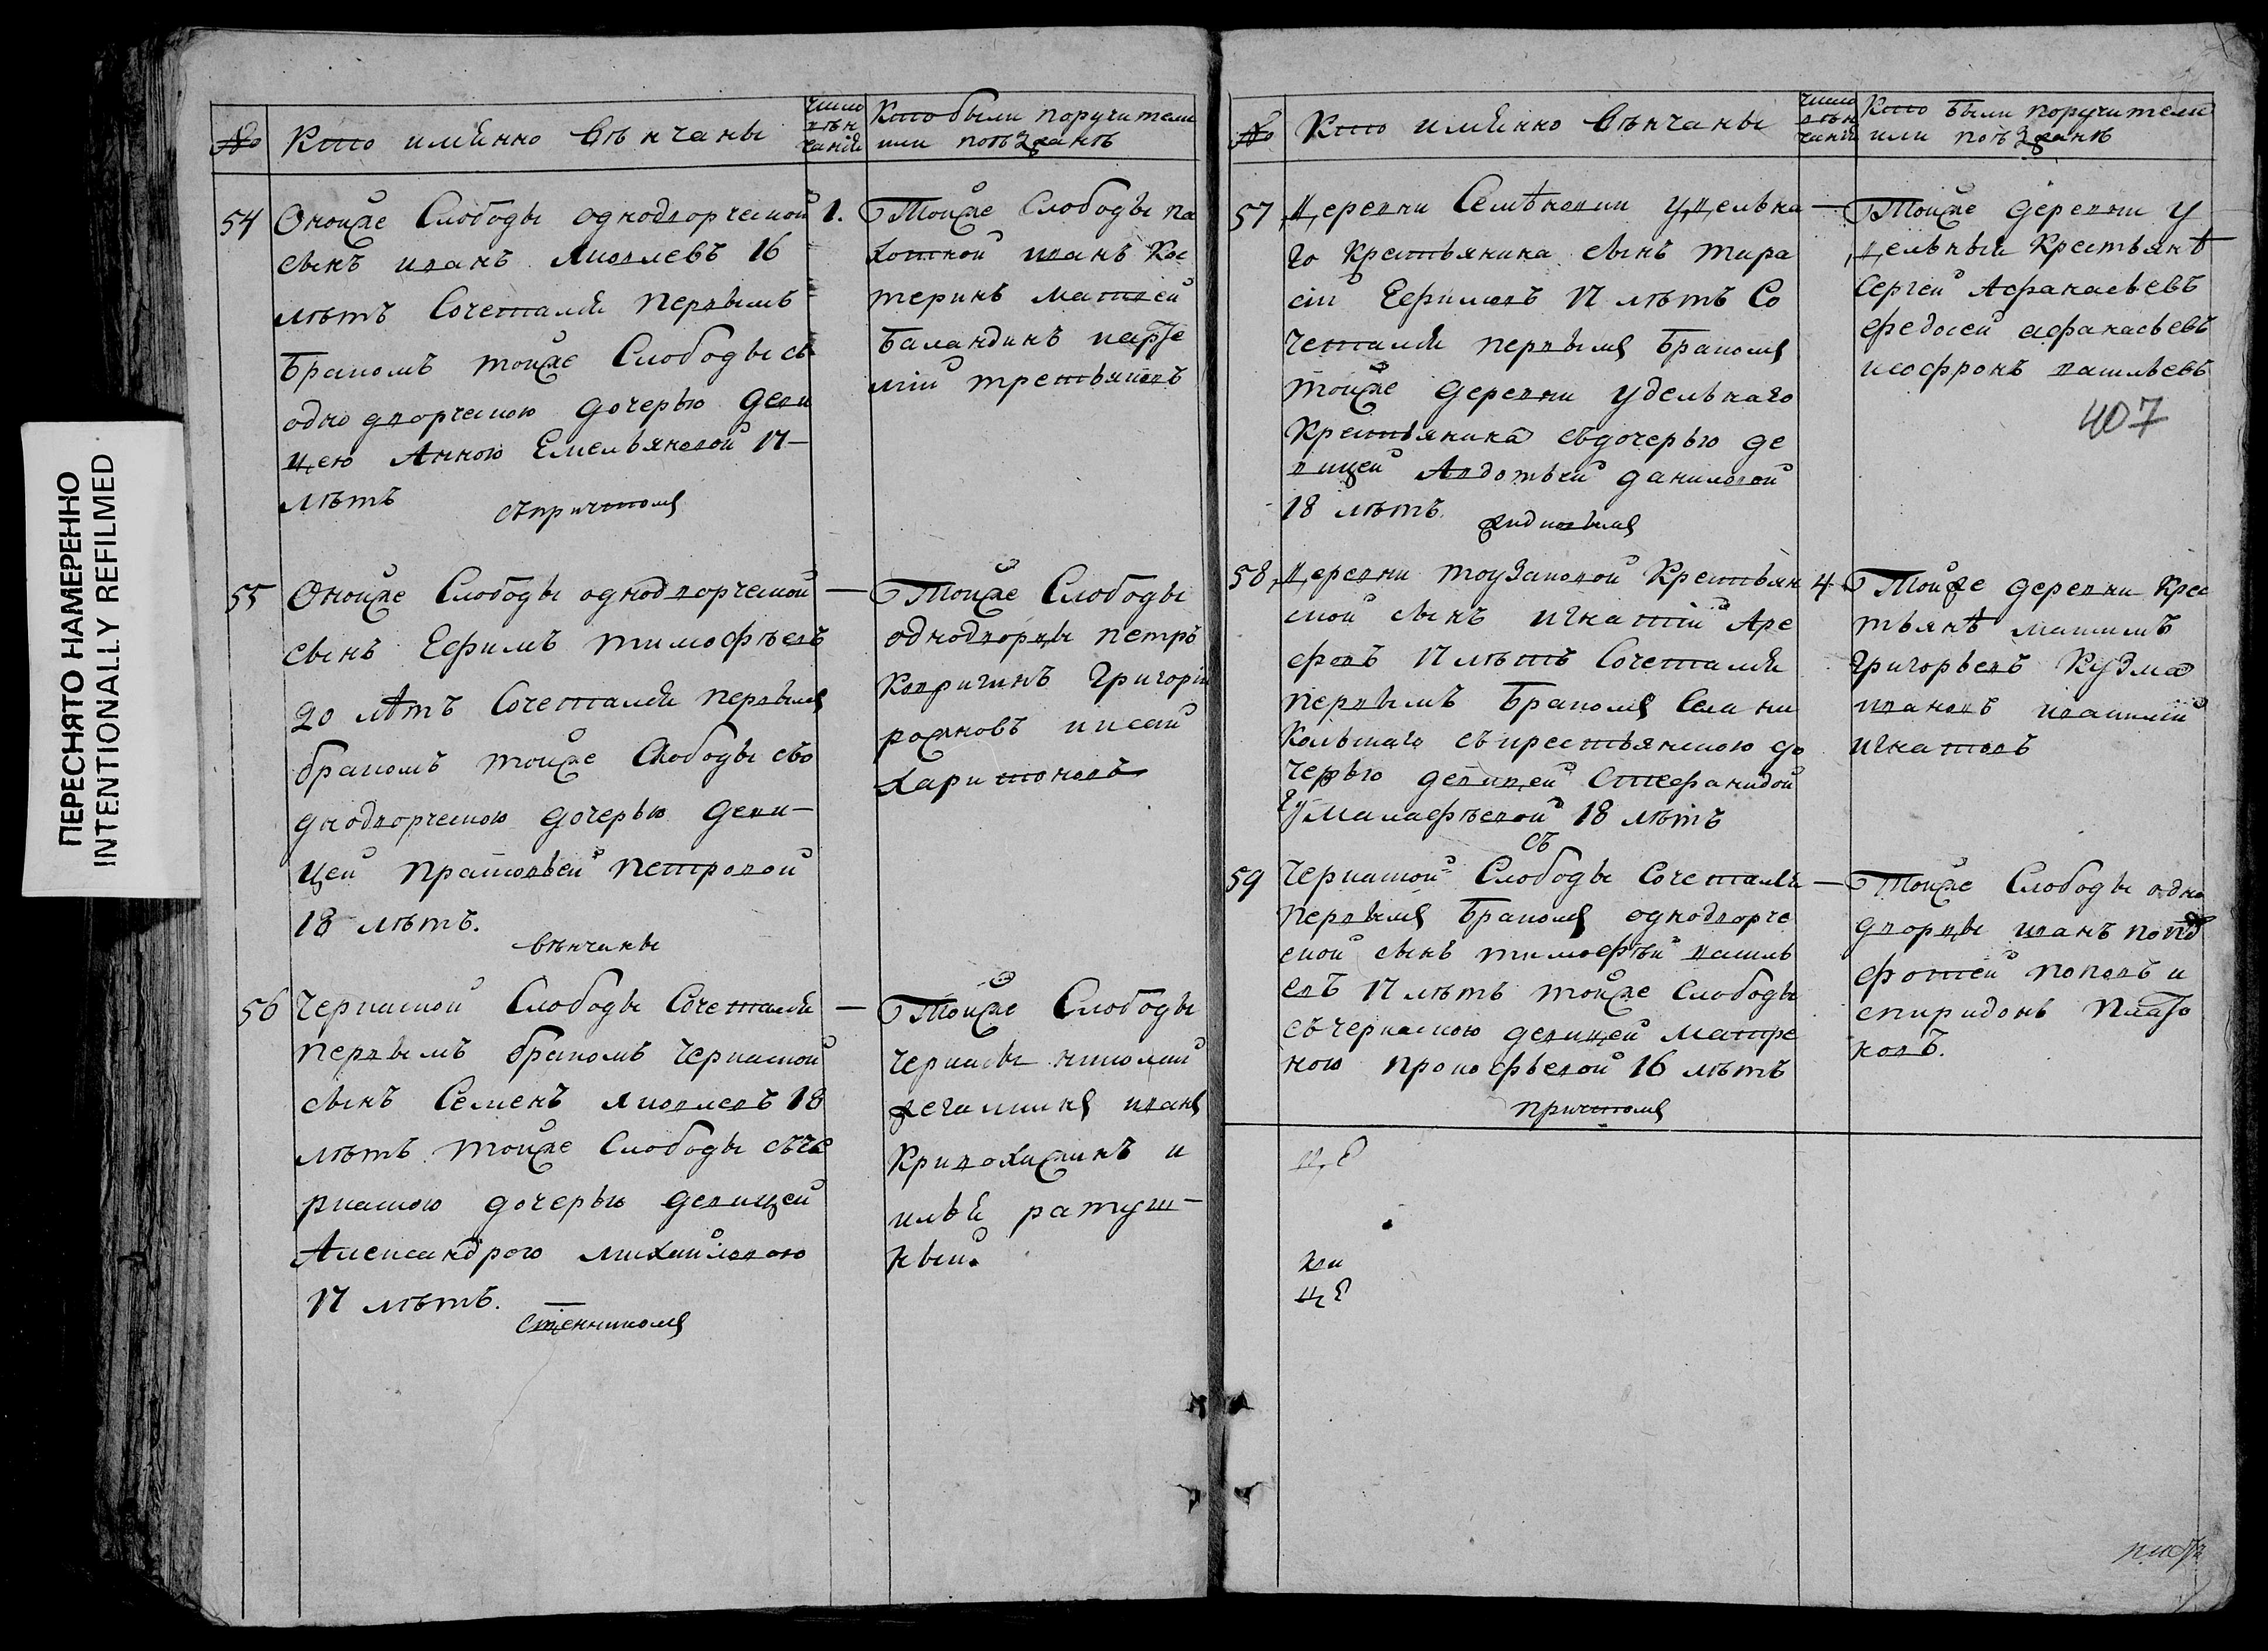 ПЕРЕСНЯТО НАМЕРЕННО
INTENTIONALLY REFILMED
№ Кто имянно венчаны
число
вѣн
чаній
Кто были поручители
или поѣзжанѣ
54 Оной же Слободы однодворческой 1.
сынъ иванъ Яковлевъ 16
лѣтъ Сочетался первымъ
бракомъ той же Слободы съ
однодворческою дочерью деви
цею Анною Емельяновой 17
лѣтъ
съпричтомъ
Той же Слободы па
хотной иванъ Кос
теринъ матвей
Баландинъ парfе
мій третьяковъ
55 Оной же Слободы однодворческой —
сынъ Ефимъ тимофѣевъ
20 лѣтъ Сочетался первымъ
бракомъ той же Слободы съо
днодворческою дочерью деви-
цей прасковьей петровой
18 лѣтъ.
вѣнчаны
Той же Слободы
однодворцы петръ
Ковригинъ Григорій
рожновъ исай
харитоновъ
56 Черкаской Слободы Сочетался —
первымъ бракомъ черкаской
сынъ Семенъ яковлевъ 18
лѣтъ той же Слободы съче
ркаскою дочерью девицей
Александрою михайловою
17 лѣтъ.
Той же Слободы
черкасы николай
иванъ
Кривохижинъ и
илья ратуш-
ный.
№ Кто имянно вѣнчаны
число
вѣн
чаній
Кто были поручители
или поѣзжанѣ
57 Деревни Семѣновки удельна —
го Крестьянина сынъ тара
сій Ефимовъ 17 лѣтъ Со
четался первымъ бракомъ
той же деревни удельнаго
Крестьянина съдочерью де
вицей Авдотьей даниловой
18 лѣтъ.
Той же деревни у
дельный Крестьянѣ
Сергей Афанасьевъ
федосей афанасьевъ
исофронъ васильевъ
407
58 Деревни Крестьян 4.
ской сынъ игнатій Аре
фовъ 17 лѣтъ Сочетался
первымъ бракомъ Села ни
кольскаго съкрестьянскою до
черью девицей Стефанидой
18 лѣтъ
съ
Той же деревни Крес
тьянѣ максимъ
григорьевъ Кузма
ивановъ
игнатовъ
59 Черкаской Слободы Сочетался —
первымъ бракомъ однодворче
ской сынъ тимофѣй василь
евъ 17 лѣтъ той же Слободы
съчеркаскою девицей матре
ною прокофьевой 16 лѣтъ
причтомъ
Той же Слободы одно
дворцы иванъ поповъ
фотей поповъ и
спиридонъ плато
новъ.